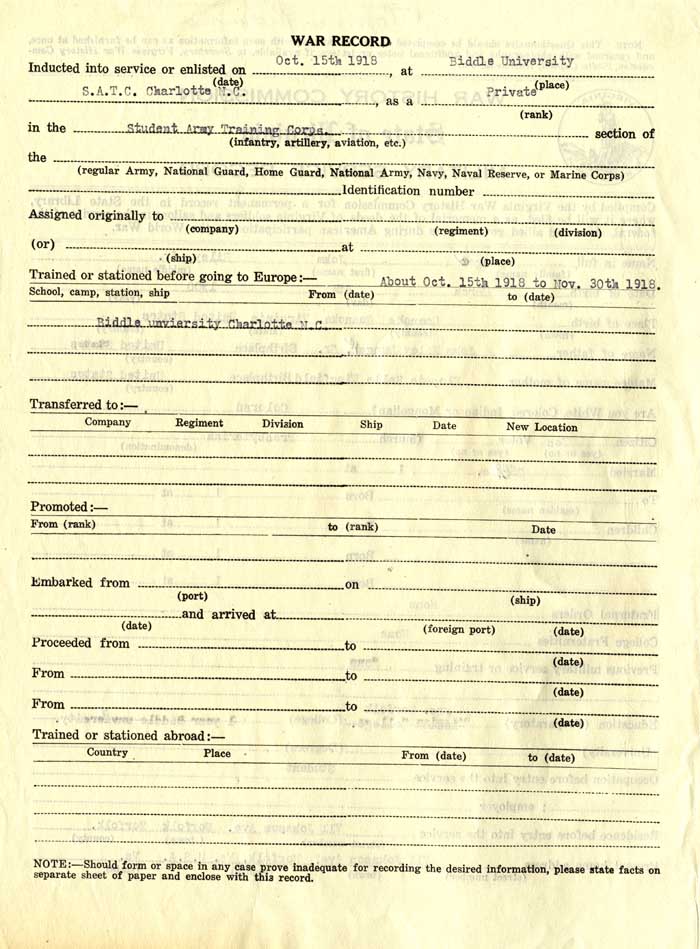 WAR RECORD
Inducted into service or enlisted on Oct. 15th 1918, at Biddle University
(date) (place)
S.A.T.C. Charlotte N.C., as a Private
(rank)
in the Student Army Training Corps. section of
(infantry, artillery, aviation, etc.)
the
(regular Army, National Guard, Home Guard, National Army, Navy, Naval Reserve, or Marine Corps)
Identification number
Assigned originally to
(company) (regiment) (division)
(or) at
(ship) (place)
Trained or stationed before going to Europe:— About Oct. 15th 1918 to Nov. 30th 1918.
School, camp, station, ship From (date) to (date)
Biddle unviersity Charlotte N.C.
Transferred to:—
Company Regiment Division Ship Date New Location
Promoted:—
From (rank) to (rank) Date
Embarked from on
(port) (ship)
and arrived at
(date) (foreign port) (date)
Proceeded from to
(date)
From to
(date)
From to
(date)
Trained or stationed abroad:—
Country Place From (date) to (date)
NOTE:—Should form or space in any case prove inadequate for recording the desired information, please state facts on
separate sheet of paper and enclose with this record.